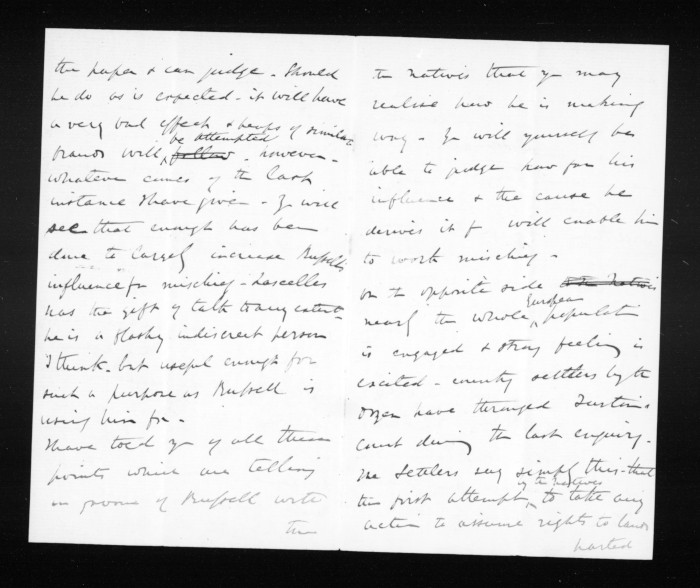 the paper & can judge - Should
he do as is expected - it will have
a very bad effect & heaps of similar
be attempted
frauds will follow - however -
whatever comes of the last
instance I have given - Ye will
see that enough has been
done to largely increase Russell's
influence for mischief - Lascelles
has the gift of talk to any extent -
he is a flashy indiscreet person
I think - but useful enough for
such a purpose as Russell is
using him for -
I have told ye of all these
points which are telling
in favour of Russell with
the
the natives that ye may
realise how he is making
way - Ye will yourself be
able to judge how far his
influence & the cause he
derives it f will enable him
to work mischief -
On the opposite side to the natives
European
nearly the whole populati
is engaged & strong feeling is
excited - country settlers by the
dozen have thronged
court during the last enquiry -
The Settlers say simply this - that
of the natives
the first attempt to take any
action to assume rights to lands
parted